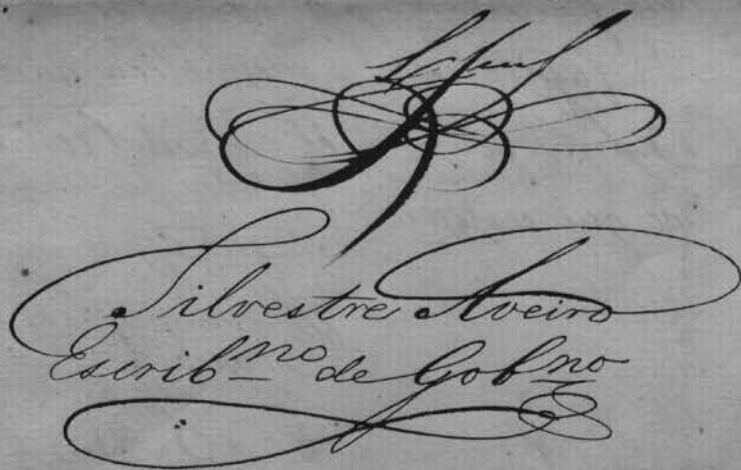 Silvestre Aveiro
Escrib.no de Gobno